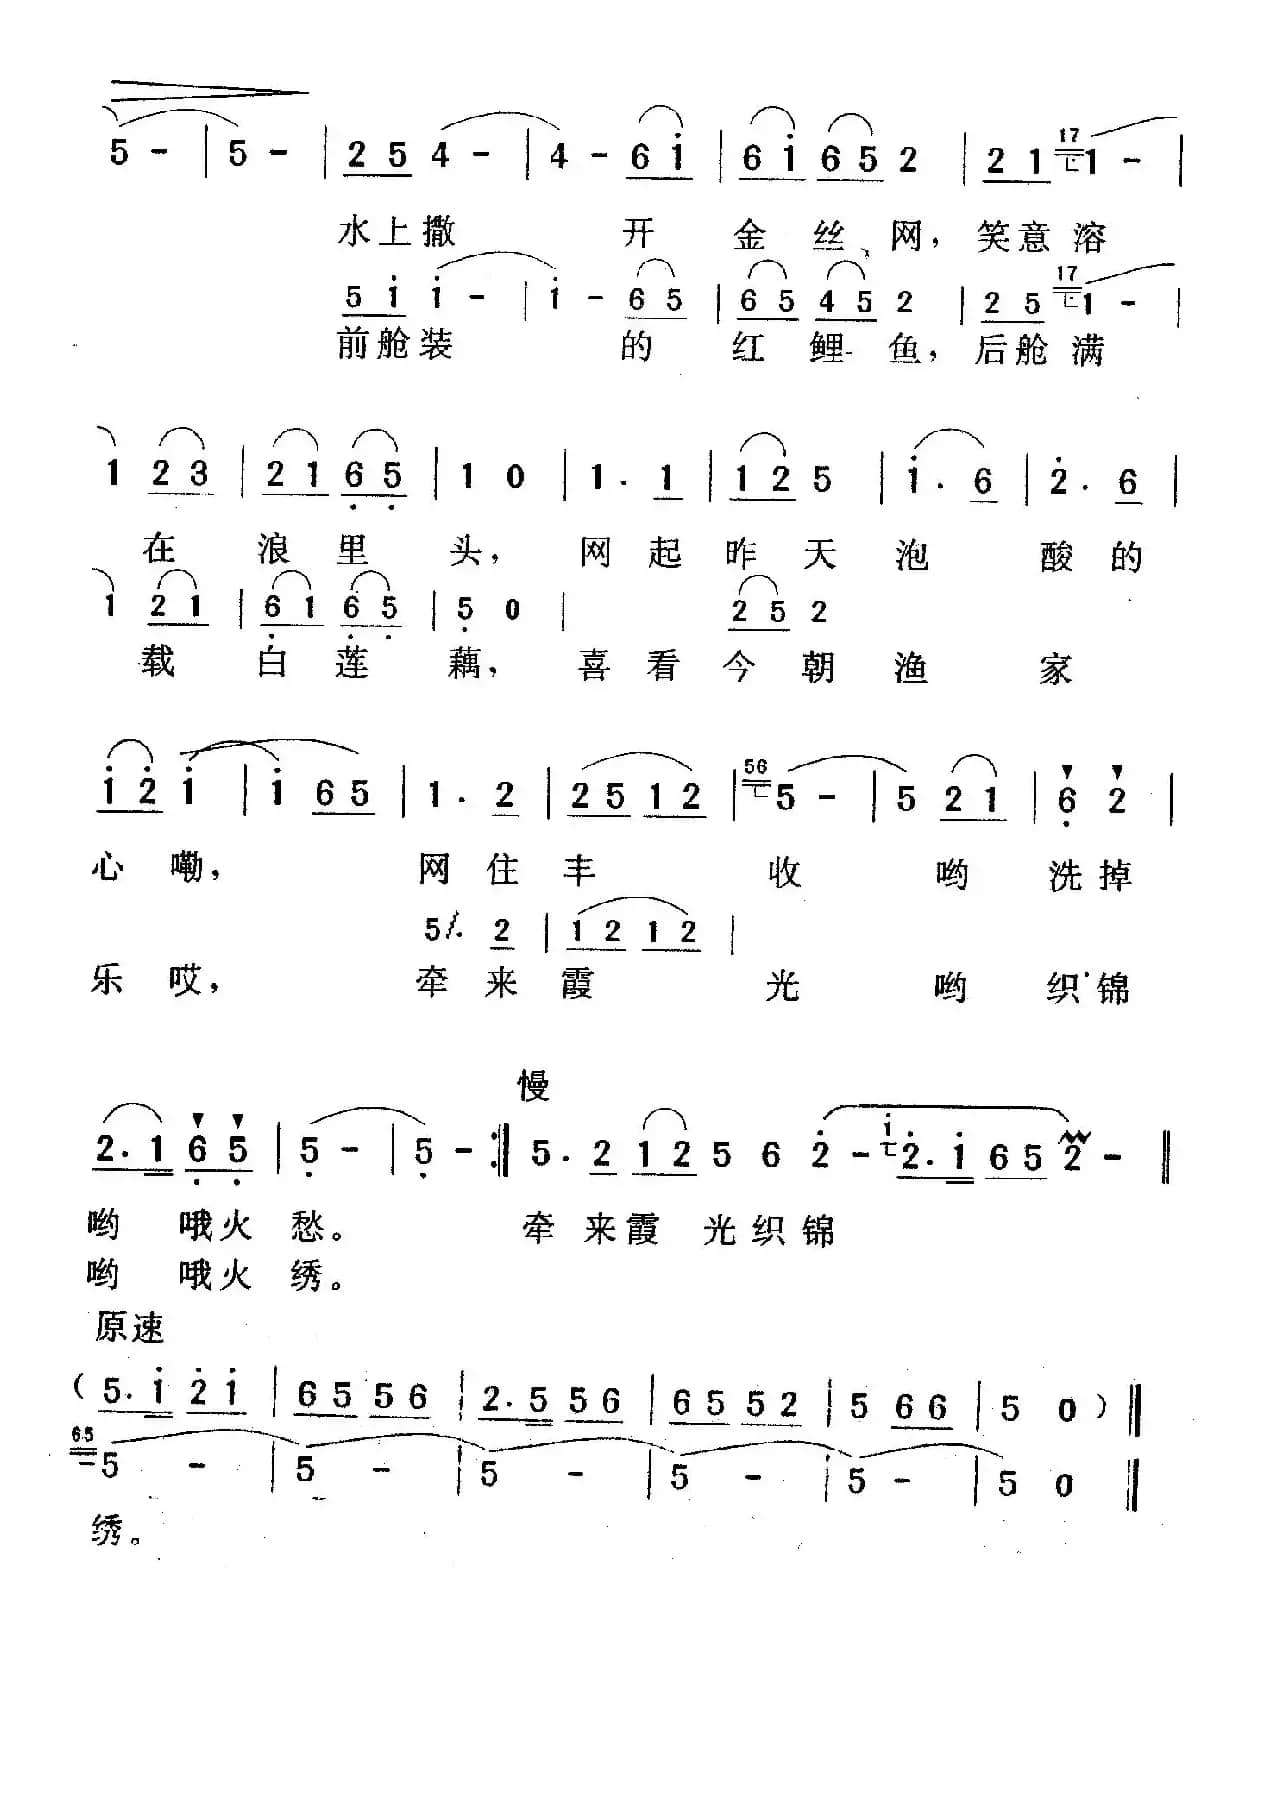 5 - | 5 - | 2 5 4 - | 4 - 6 i | 6 i 6 5 2 | 2 1 17 1 - |
水上撒 开 金 丝 网，笑意溶
5 i i - | i - 6 5 | 6 5 4 5 2 | 2 5 17 1 - |
前舱装 的 红 鲤 鱼，后舱满
1 2 3 | 2 1 6 5 | 1 0 | 1. 1 | 1 2 5 | i. 6 | 2. 6 |
在 浪 里 头，网 起 昨 天 泡 酸的
1 2 1 | 6 1 6 5 | 5 0 | 2 5 2
载 白 莲 藕，喜 看 今 朝 渔 家
i 2 i | i 6 5 | 1. 2 | 2 5 1 2 | 56 5 - | 5 2 1 | 6 2 |
心 嘞，网 住 丰 收 哟 洗掉
5. 2 | 1 2 1 2 |
乐 哎，牵 来 霞 光 哟 织锦
慢
2. 1 6 5 | 5 - | 5 - :‖ 5. 2 1 2 5 6 2 - i 2. i 6 5 2 - ‖
哟 哦火 愁。 牵 来霞 光织锦
哟 哦火 绣。
原速
( 5. i 2 i | 6 5 5 6 | 2. 5 5 6 | 6 5 5 2 | 5 6 6 | 5 0 ) ‖
65 5 - | 5 - | 5 - | 5 - | 5 - | 5 0 ‖
绣。